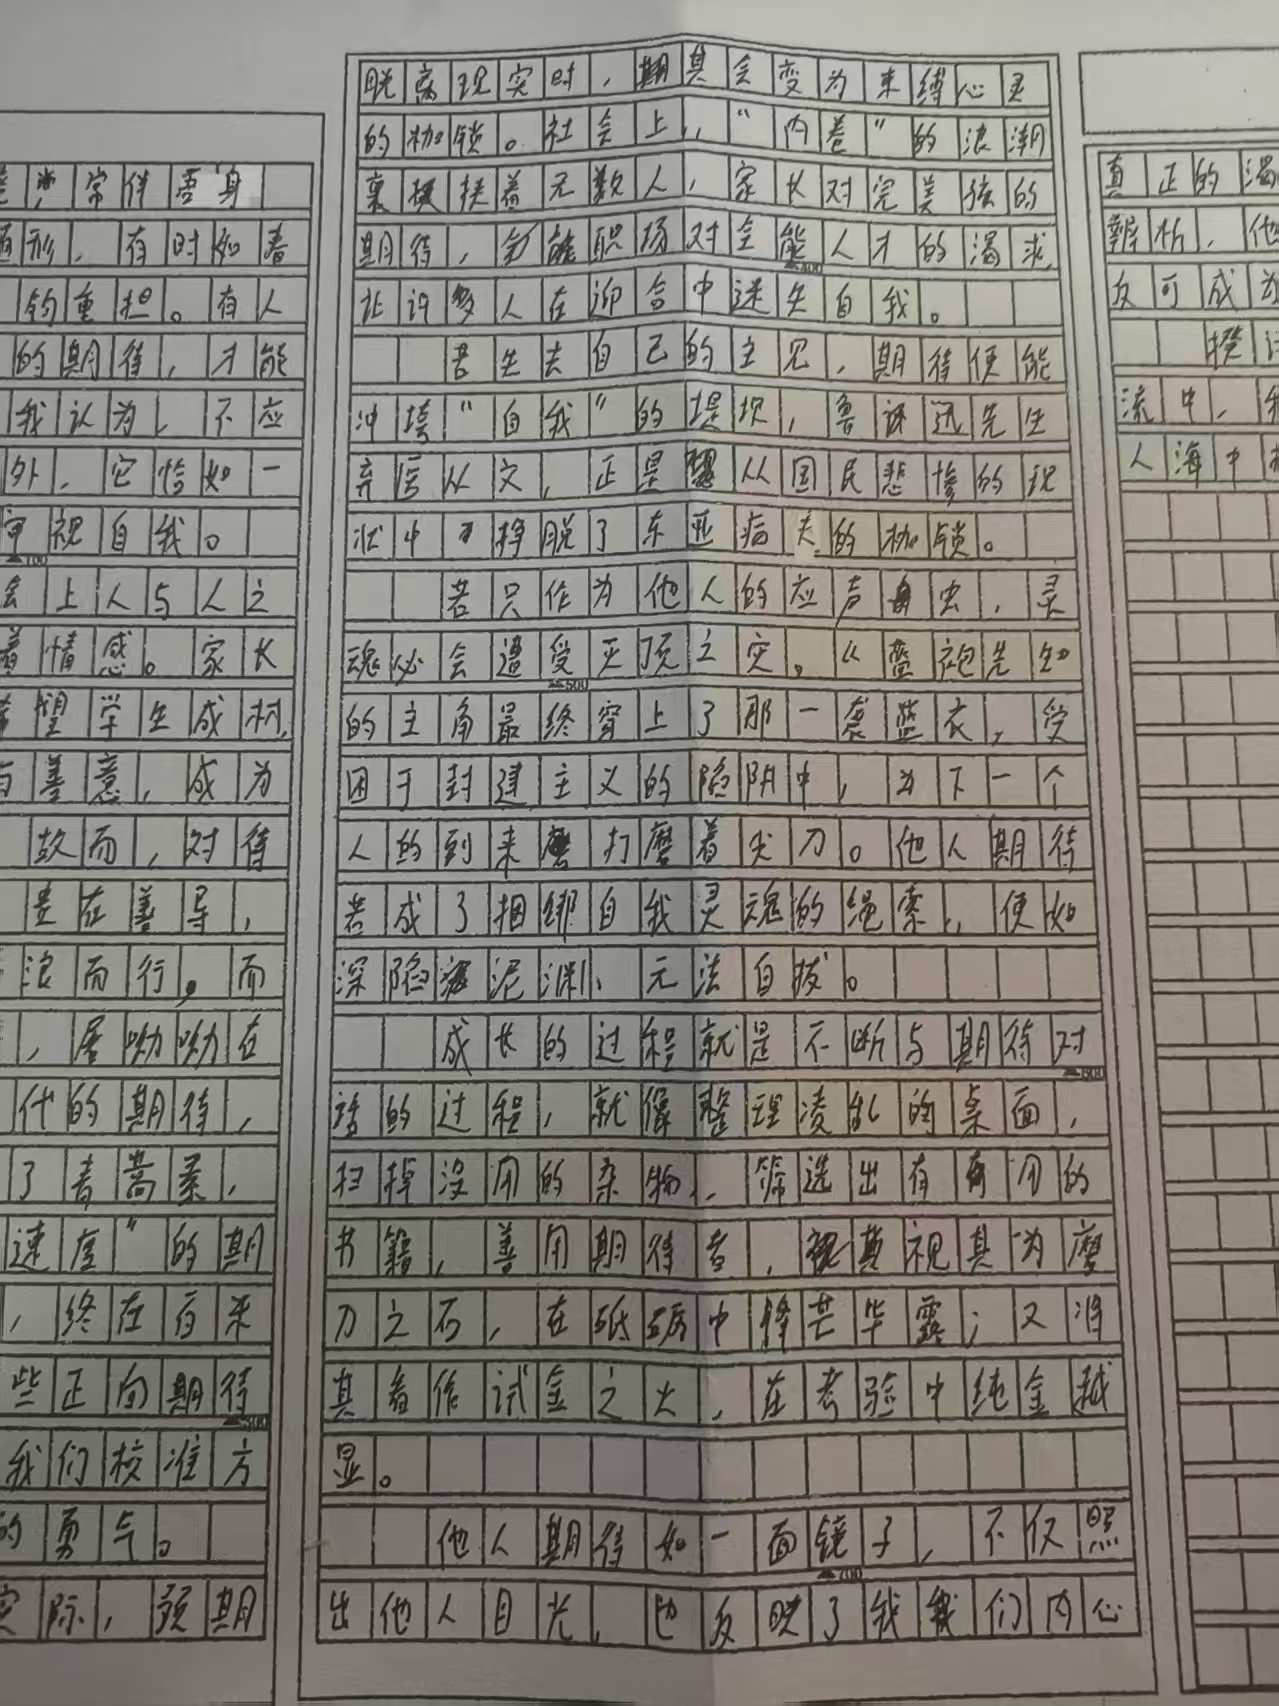 ，常伴吾身
形，有时如春
的重担。有人
的期待，才能
我认为，不应
外，它恰如一
审视自我。
100
会上人与人之
着情感。家长
希望学生成材，
善意，成为
故而，对待
贵在善导，
浪而行。而
，屠呦呦在
代的期待，
了青蒿素，
速度”的期
，终在百米
些正向期待
300
我们校准方
的勇气。
实际，预期
脱离现实时，期其会变为束缚心灵
的枷锁。社会上，“内卷”的浪潮
裹挟着无数人，家长对完美孩的
期待，职场对全能人才的渴求，
400
让许多人在迎合中迷失自我。
若失去自己的主见，期待便能
冲垮“自我”的堤坝，鲁迅先生
弃医从文，正是从国民悲惨的现
状中挣脱了东亚病夫的枷锁。
若只作为他人的应声虫，灵
魂必会遭受灭顶之灾。《蓝袍先生》
500
的主角最终穿上了那一袭蓝衣，受
困于封建主义的阴中，为下一个
人的到来打磨着尖刀。他人期待
若成了捆绑自我灵魂的绳索，便如
深陷泥渊、无法自拔。
成长的过程就是不断与期待对
600
话的过程，就像整理凌乱的桌面，
扫掉没用的杂物，筛选出有用的
书籍，善用期待者，视其为磨
刀之石，在砥砺中锋芒毕露；又将
其看作试金之火，在考验中纯金越
显。
他人期待如一面镜子，不仅照
700
出他人目光，也反映了我我们内心
真正的渴
辨析，他
反可成为
流中，我
人海中